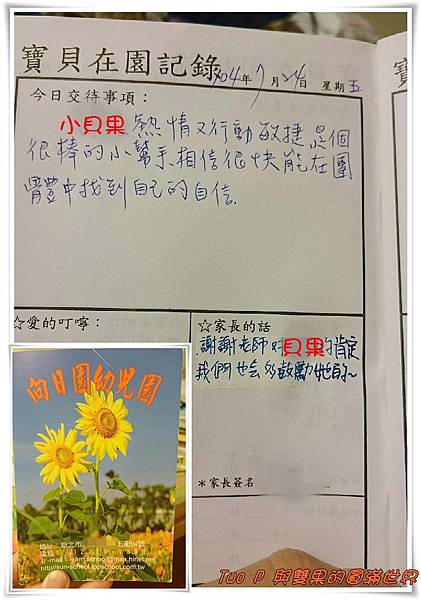 寶貝在園記錄 104年7月24日 星期五
今日交待事項：
小貝果 熱情又行動敏捷是個
很棒的小幫手.相信很快能在團
體中找到自己的自信.
☆愛的叮嚀：
☆家長的話
謝謝老師對貝果的肯定
我們也會多鼓勵她的~
＊家長簽名
向日園幼兒園
地址：新北市
http://sun-school.topschool.com.tw
Tuo P 與雙果的圓滿世界